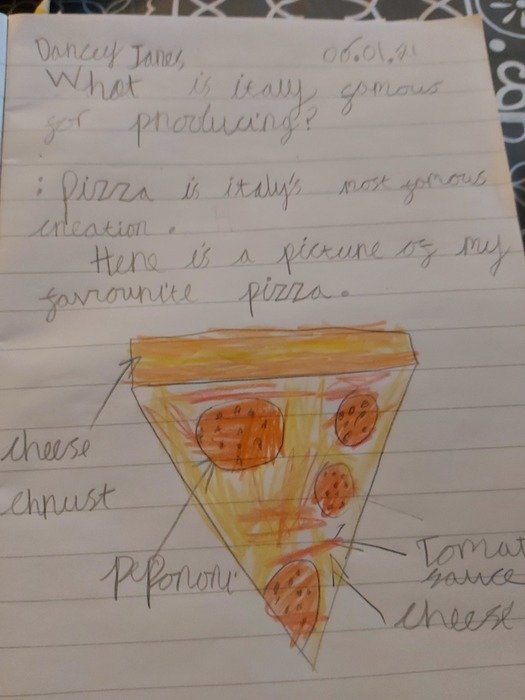 Darcey Janes, 06.01.21
What is italy famous
for producing?
: Pizza is italy's most famous
creation.
Here is a picture of my
favrourite pizza.
cheese
chrust
peporoni
Tomat
sauce
cheese